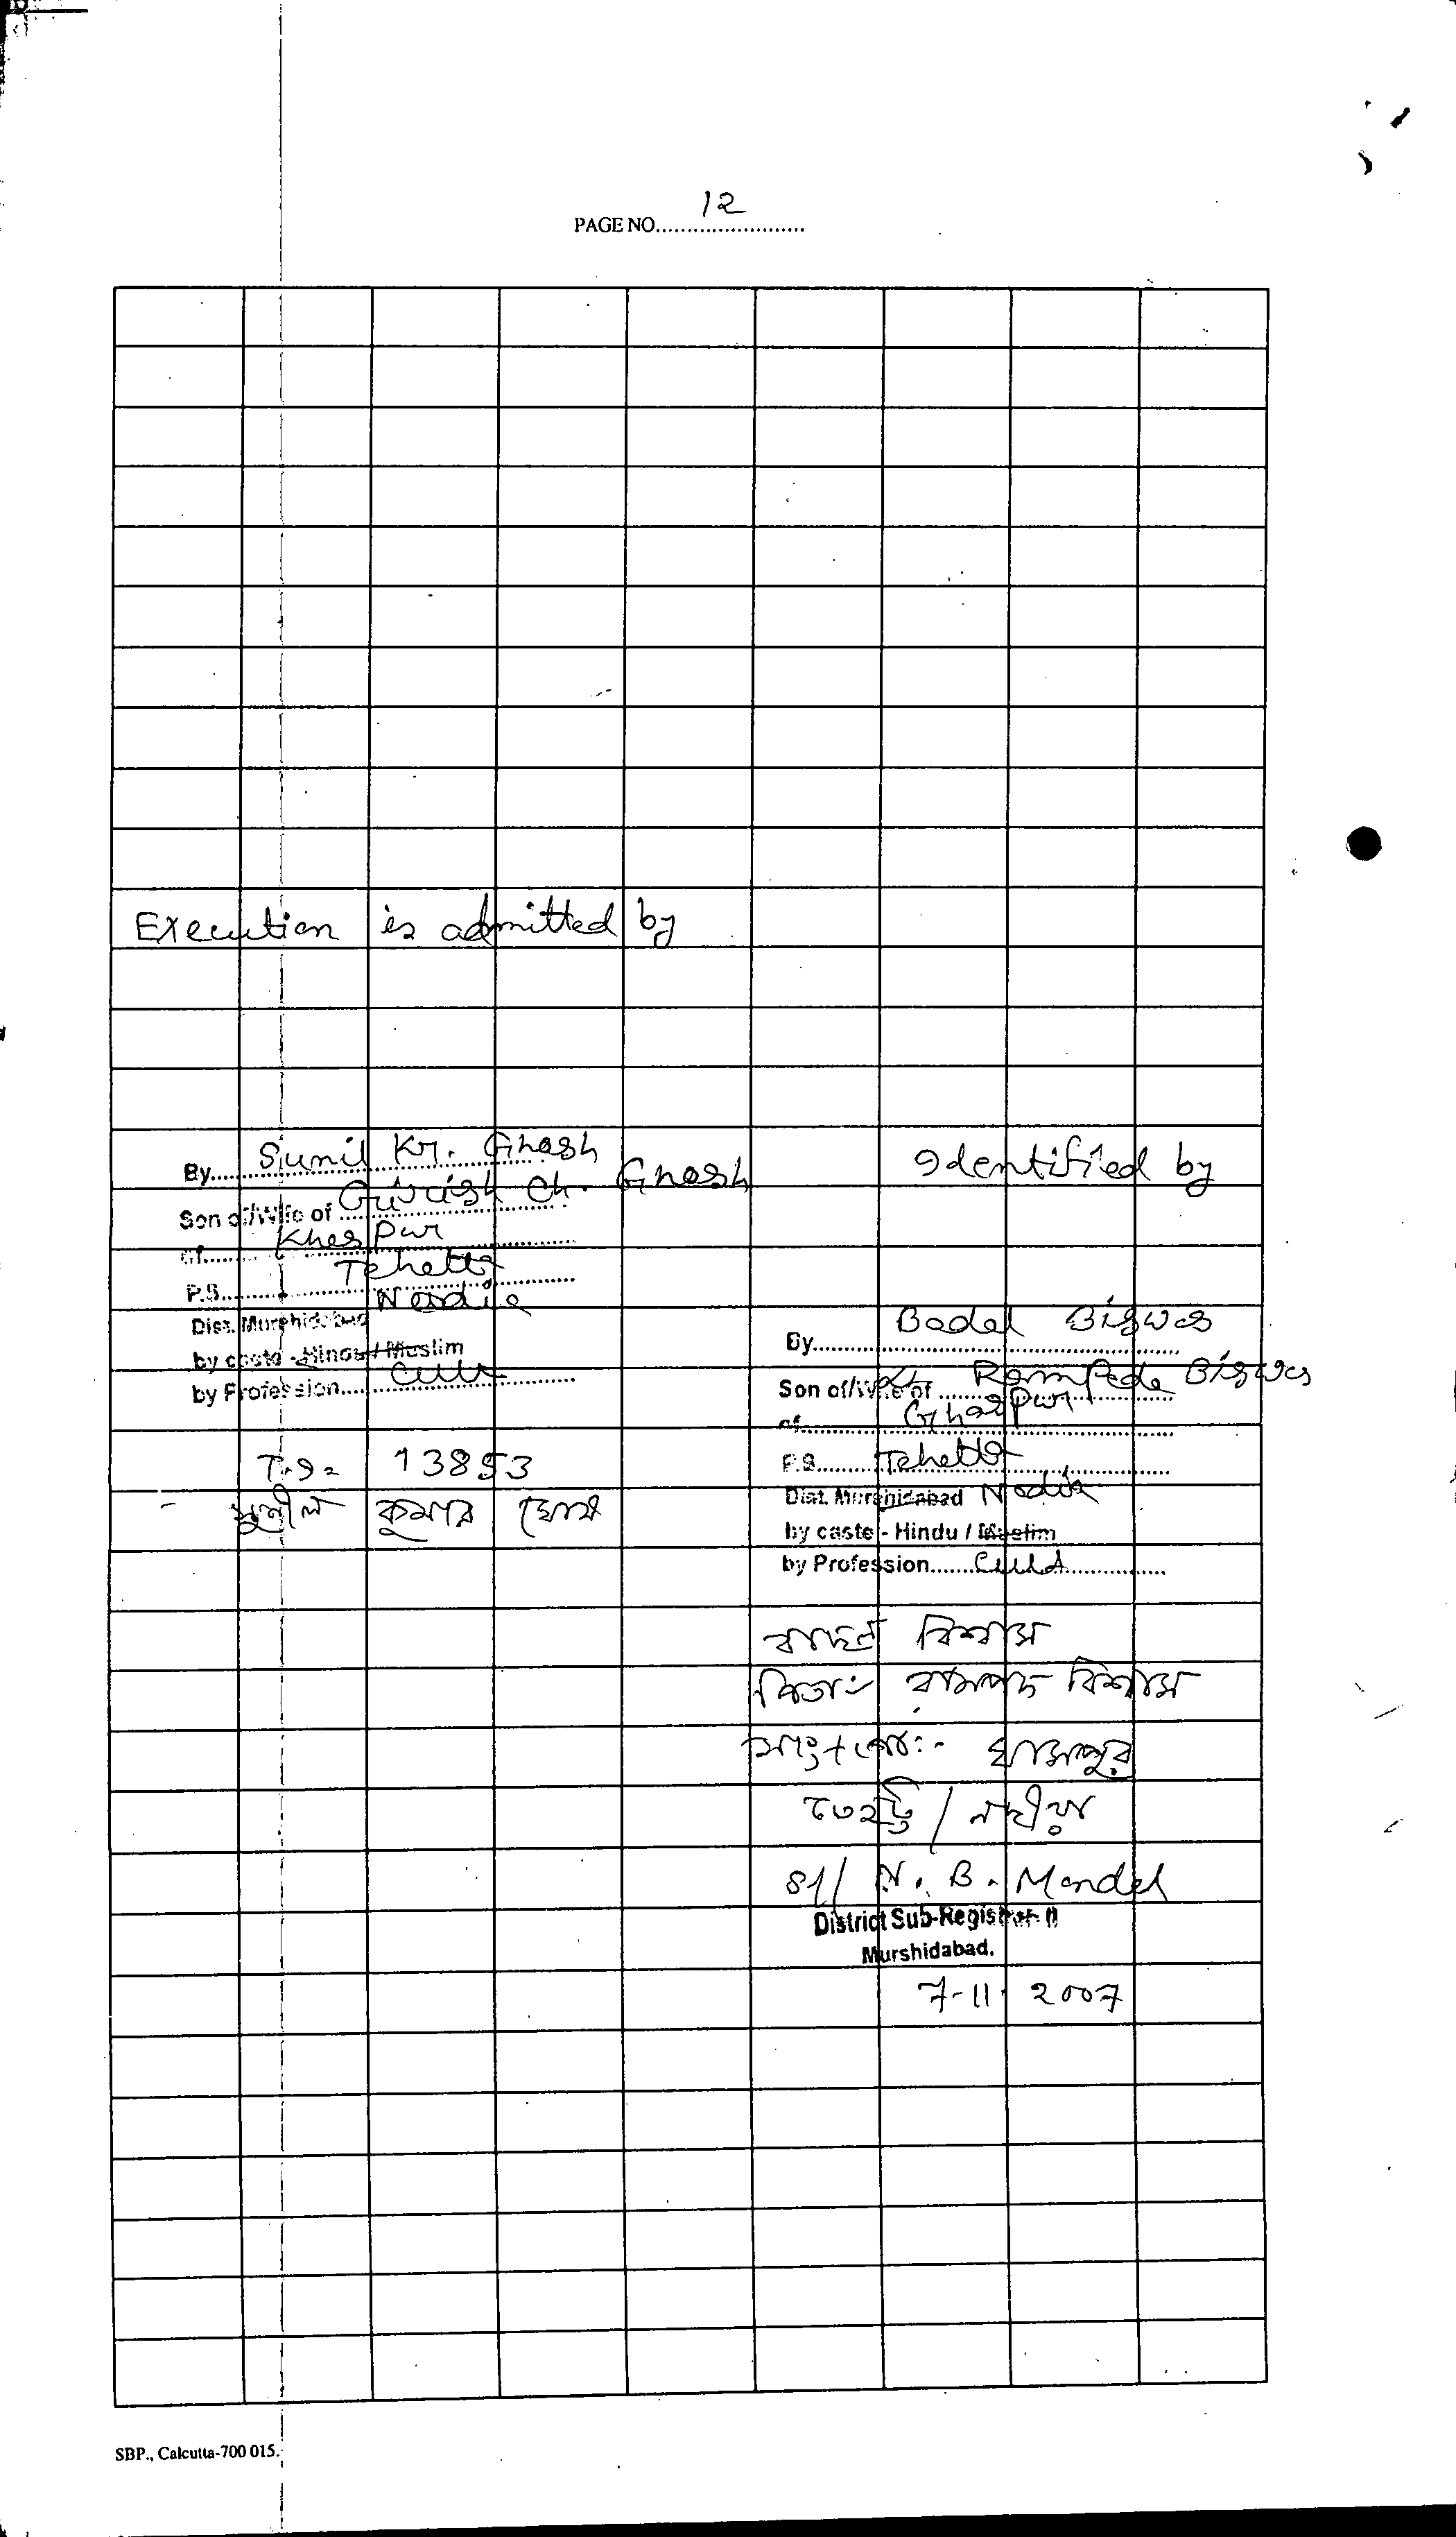 PAGE NO. 12
Execution is admitted by
By Sunil Kr. Ghosh
Son of/Wife of Girish Ch. Ghosh
of Khaspur
P.S. Tehatta
Dist. Murshidabad Nadia
by caste - Hindu / Muslim
by Profession
T.I. 13853
সুনীল কুমার ঘোষ
Identified by
By Badal Biswas
Son of/Wife of Rampada Biswas
of Ghaspur
P.S. Tehatta
Dist. Murshidabad Nadia
by caste - Hindu / Muslim
by Profession
বাদল বিশ্বাস
পিতা:- রামপদ বিশ্বাস
সাং+পোঃ- ঘাসপুর
তেহট্ট / নদীয়া
Sd/ N. B. Mandal
District Sub-Registrar-II
Murshidabad.
7-11-2007
SBP., Calcutta-700 015.